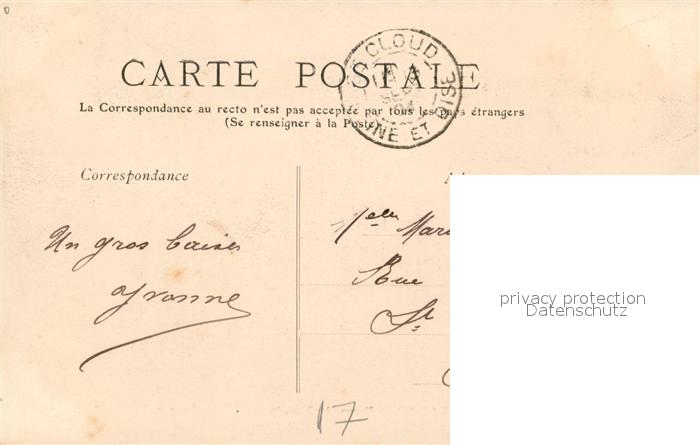 CARTE POSTALE
La Correspondance au recto n'est pas acceptée par tous les pays étrangers
(Se renseigner à la Poste)
CLOUD
ET OISE
Correspondance
Un gros baiser
Yvonne
Melle
Rue
St
privacy protection
Datenschutz
17